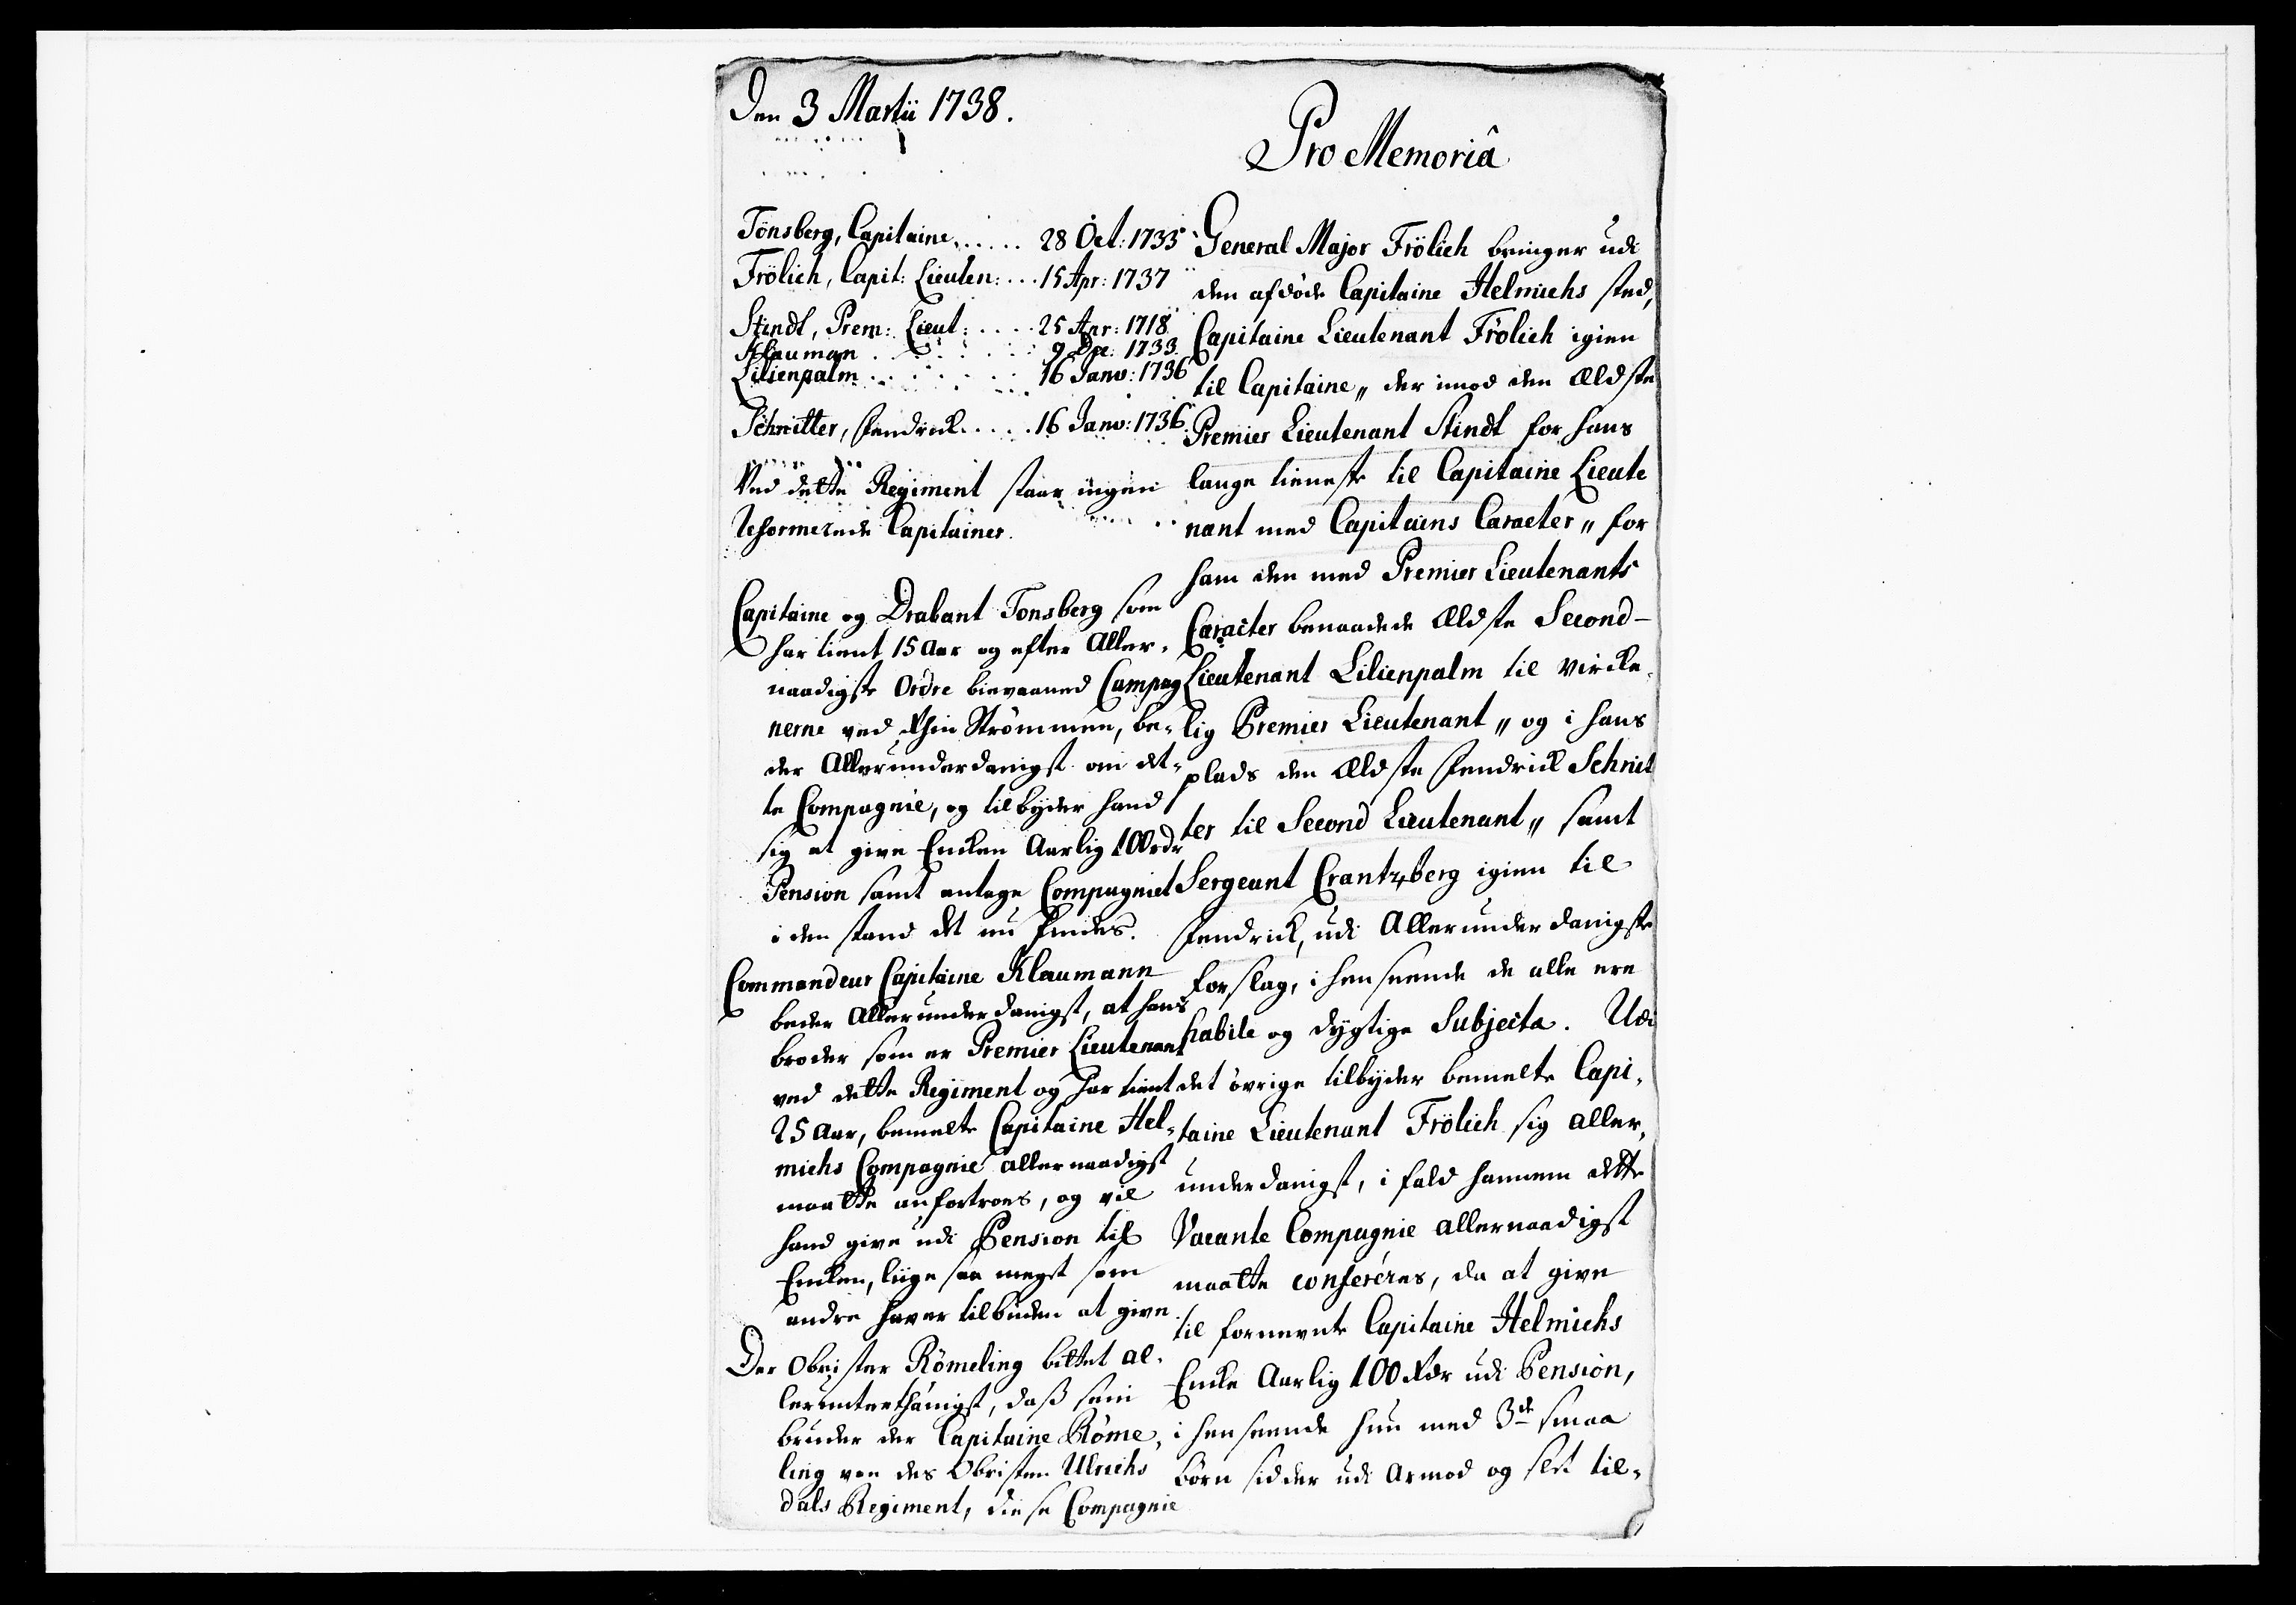 Den 3 Martii 1738.
Pro Memoriâ
Tönsberg, Capitaine...... 28 Oct: 1735
Frölich, Capit: Lieuten:... 15 Apr: 1737
Stindt, Prem: Lieut:.... 25 Apr: 1718
Klauman........ 9 Dec: 1733.
Lilienpalm........ 16 Janv: 1736
Schnitter, Fendrick..... 16 Janv: 1736
Ved dette Regiment staar ingen
Reformerede Capitainer.
Capitaine og Drabant Tonsberg som
har tient 15 Aar og efter Aller-
naadigste Ordre bievaaned Campag
nerne ved Rhin Strömmen, be-
der Allerunderdanigst om det-
te Compagnie, og tilbyder hand
sig at give Encken Aarlig 100 rdr
Pension samt antage Compagniet
i den stand det nu findes.
Commandeur Capitaine Klaumann
beder Allerunderdanigst, at hans
broder som er Premier Lieutenant
ved dette Regiment og har tient
25 Aar, bemelte Capitaine Hel-
michs Compagnie allernaadigst
maatte anfortroes, og vil
hand give udi Pension til
Encken, liige saa meget som
andre haver tilbuden at give
Der Obrister Römeling bittet al-
lerunterthänigst, daß sein
bruder der Capitaine Röme-
ling von des Obristen Ulrichs
dals Regiment, diese Compagnie
General Major Frölich bringer udi
den afdöde Capitaine Helmichs sted,
Capitaine Lieutenant Frölich igien
til Capitaine„ der imod den Ældste
Premier Lieutenant Stindt for hans
lange tieneste til Capitaine Lieute
nant med Capitains Caracter„ for
ham den med Premier Lieutenants
Caracter benaadede Ældste Second-
Lieutenant Lilienpalm til Vircke-
lig Premier Lieutenant„ og i hans
plads den Ældste Fendrick Schnit
ter til Second Lieutenant„ samt
Sergeant Crantzberg igien til
Fendrick, udi Allerunderdanigste
forslag, i henseende de alle ere
habile og dygtige Subjecta. Udi
det övrige tilbyder bemelte Capi-
taine Lieutenant Frölich sig aller-
underdanigst, i fald hannem dette
Vacante Compagnie allernaadigst
maatte conferéres, da at give
til fornevnte Capitaine Helmichs
Encke Aarlig 100 Rdr udi Pension,
i henseende hun med 3de smaa
börn sidder udi Armod og slet til-